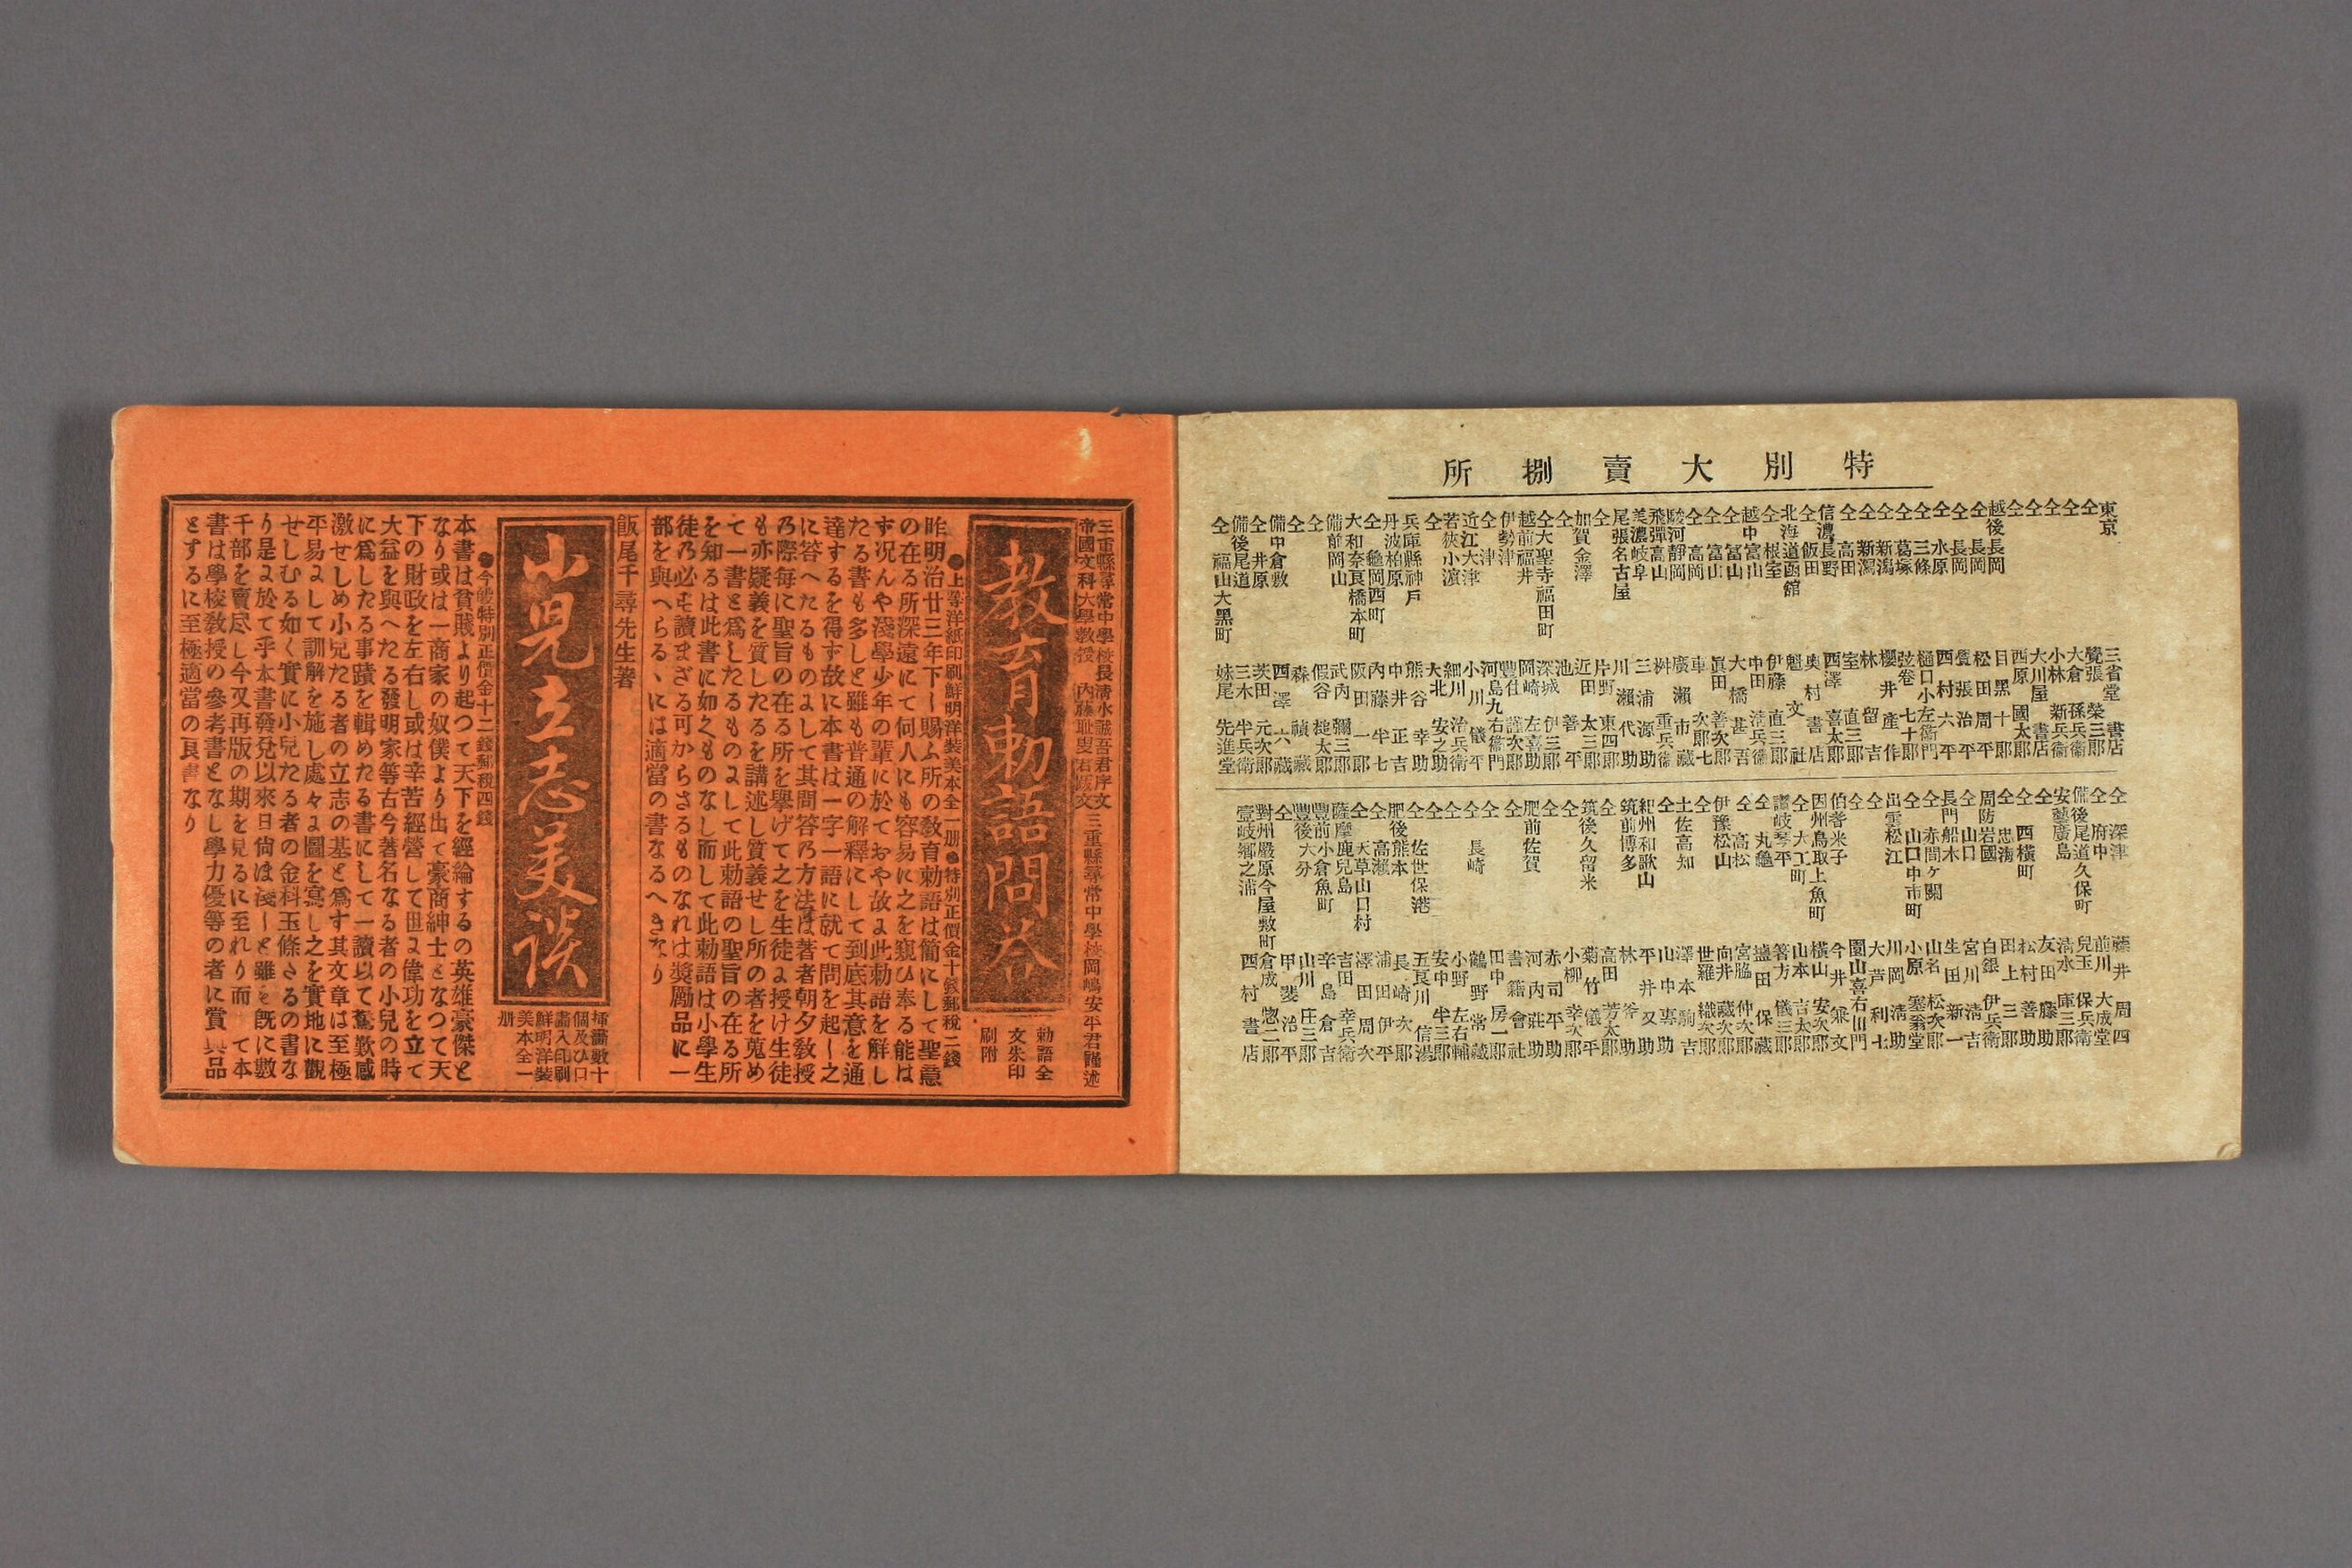 特別大賣捌所
東京 三省堂書店
仝 覺張榮三郎
仝 大倉孫兵衞
仝 小林新兵衞
仝 大川屋書店
仝 西原國太郎
越後長岡 目黑十郎
仝長岡 松田周平
仝長岡 覺張治平
仝水原 西村六平
仝三條 樋口小左衞門
仝葛塚 弦卷七十郎
仝新潟 櫻井產作
仝新潟 林留吉
仝高田 室直三郎
信濃長野 西澤喜太郎
仝飯田 奥村書店
北海道函館 魁文社
仝根室 伊藤直三郎
越中富山 中田淸兵衞
仝富山 大橋甚吾
仝富山 眞田善次郎
仝高岡 車次郎七
駿河靜岡 廣瀨市藏
飛彈高山 桝重兵衞
美濃岐阜 三浦源助
尾張名古屋 川瀨代助
仝 片野東四郎
加賀金澤 近田太三郎
仝 池善平
仝大聖寺福田町 深城伊三郎
越前福井 岡崎左喜助
伊勢津 豐住謹次郎
仝津 河島九右衞門
近江大津 小川儀平
若狹小濵 細川治兵衞
仝 大北安之助
兵庫縣神戸 熊谷幸助
丹波柏原 中井正吉
仝龜岡西町 内藤半七
大和奈良橋本町 阪田一郎
備前岡山 武内彌三郎
仝 假谷槌太郎
仝 森禎藏
備中倉敷 西澤六藏
仝井原 茨田元次郎
備後尾道 三木半兵衛
仝福山大黑町 妹尾先進堂
仝深津 藤井周四
仝府中 前川大成堂
備後尾道久保町 兒玉保兵衞
安藝廣島 淸水庫三郎
仝 友田藤助
仝西橫町 松村善助
仝忠海 田上三郎
周防岩國 白銀伊兵衞
仝山口 宮川淸吉
長門船木 生田新一
仝赤間ヶ關 山名松次郎
仝山口中市町 小原塞翁堂
出雲松江 川岡淸助
仝 大芦利七
仝 園山喜右衞門
伯耆米子 今井兼文
因州鳥取上魚町 橫山安次郎
仝大工町 山本吉太郎
讃岐琴平 筈方儀三郎
仝丸龜 盬田保藏
仝高松 宮脇仲次郎
伊豫松山 向井藏次郎
仝 世羅織次郎
土佐高知 澤本駒吉
仝 山中專助
紀州和歌山 平井又助
筑前博多 林斧助
仝 高田芳太郎
筑後久留米 菊竹儀平
仝 小柳幸次郎
仝 赤司平助
肥前佐賀 河内莊助
仝 書籍會社
仝 田中房一郎
仝長崎 鶴野常藏
仝 小野左右輔
仝 安中半三郎
仝佐世保港 五良川信湯
肥後熊本 長崎次郎
仝高瀨 浦田伊平
仝天草山口村 澤田周次
薩摩鹿兒島 吉田幸兵衛
豐前小倉魚町 辛島倉吉
豐後大分 山川庄三郎
仝 甲斐治平
對州嚴原今屋敷町 倉成惣二郎
壹岐鄉之浦 西村書店
三重縣尋常中學校長淸水誠吾君序文
帝國文科大學敎授 内藤耻叟君跋文
三重縣尋常中學校岡嶋安平君謹述
敎育勅語問答
勅語全文朱印刷附
●上等洋紙印刷鮮明洋裝美本全一册●特別正價金十錢郵稅二錢
昨明治廿三年下し賜ふ所の敎育勅語は簡にして聖意
の在る所深遠にて何人にも容易に之を窺ひ奉る能は
ず况んや淺學少年の輩に於ておや故よ此勅語を解し
たる書も多しと雖も普通の解釋にして到底其意を通
達するを得ず故に本書は一字一語に就て問を起し之
に答へたるものよして其問答乃方法は著者朝夕敎授
乃際每に聖旨の在る所を擧げて之を生徒よ授け生徒
も亦疑義を質したるを講述し質義せし所の者を蒐め
て一書と爲したるものよして此勅語の聖旨の在る所
を知るは此書に如くものなし而して此勅語は小學生
徒乃必も讀まざる可からさるものなれは奬勵品に一
部を與へらるゝには適當の書なるへきなり
飯尾千尋先生著
小兒立志美談
揷畵數十個及ひ口畵入印刷鮮明洋裝美本全一册
●今般特別正價金十二錢郵稅四錢
本書は貧賎より起つて天下を經綸するの英雄豪傑と
なり或は一商家の奴僕より出て豪商紳士となつて天
下の財政を左右し或は辛苦經營して世よ偉功を立て
大益を與へたる發明家等古今著名なる者の小兒の時
に爲したる事蹟を輯めたる書にして一讀以て驚歎感
激せしめ小兒たる者の立志の基と爲す其文章は至極
平易よして訓解を施し處々よ圖を寫し之を實地に觀
せしむる如く實に小兒たる者の金科玉條さるの書な
り是よ於て乎本書發兌以來日尙ほ淺しと雖も既に數
千部を賣尽し今又再版の期を見るに至れり而して本
書は學校敎授の參考書となし學力優等の者に賞與品
とするに至極適當の良書なり